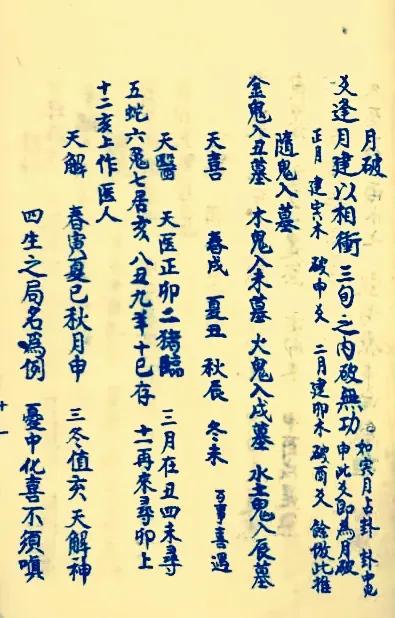 月破
爻逢月建以相衝 三旬之內破無功 如寅月占卦 卦中見申 此爻即為月破
正月 建寅木 破申爻 二月建卯木 破酉爻 餘倣此推
隨鬼入墓
金鬼入丑墓 木鬼入未墓 火鬼入戌墓 水土鬼入辰墓
天喜 春戌 夏丑 秋辰 冬未 百事喜遇
天醫 天医正卯二猪臨 三月在丑四未尋
五蛇六兔七居亥 八丑九羊十巳存 十一再來尋卯上
十二亥上作医人
天解 春寅夏巳秋月申 三冬值亥天解神
四生之局名為例 憂中化喜不須嗔
十一